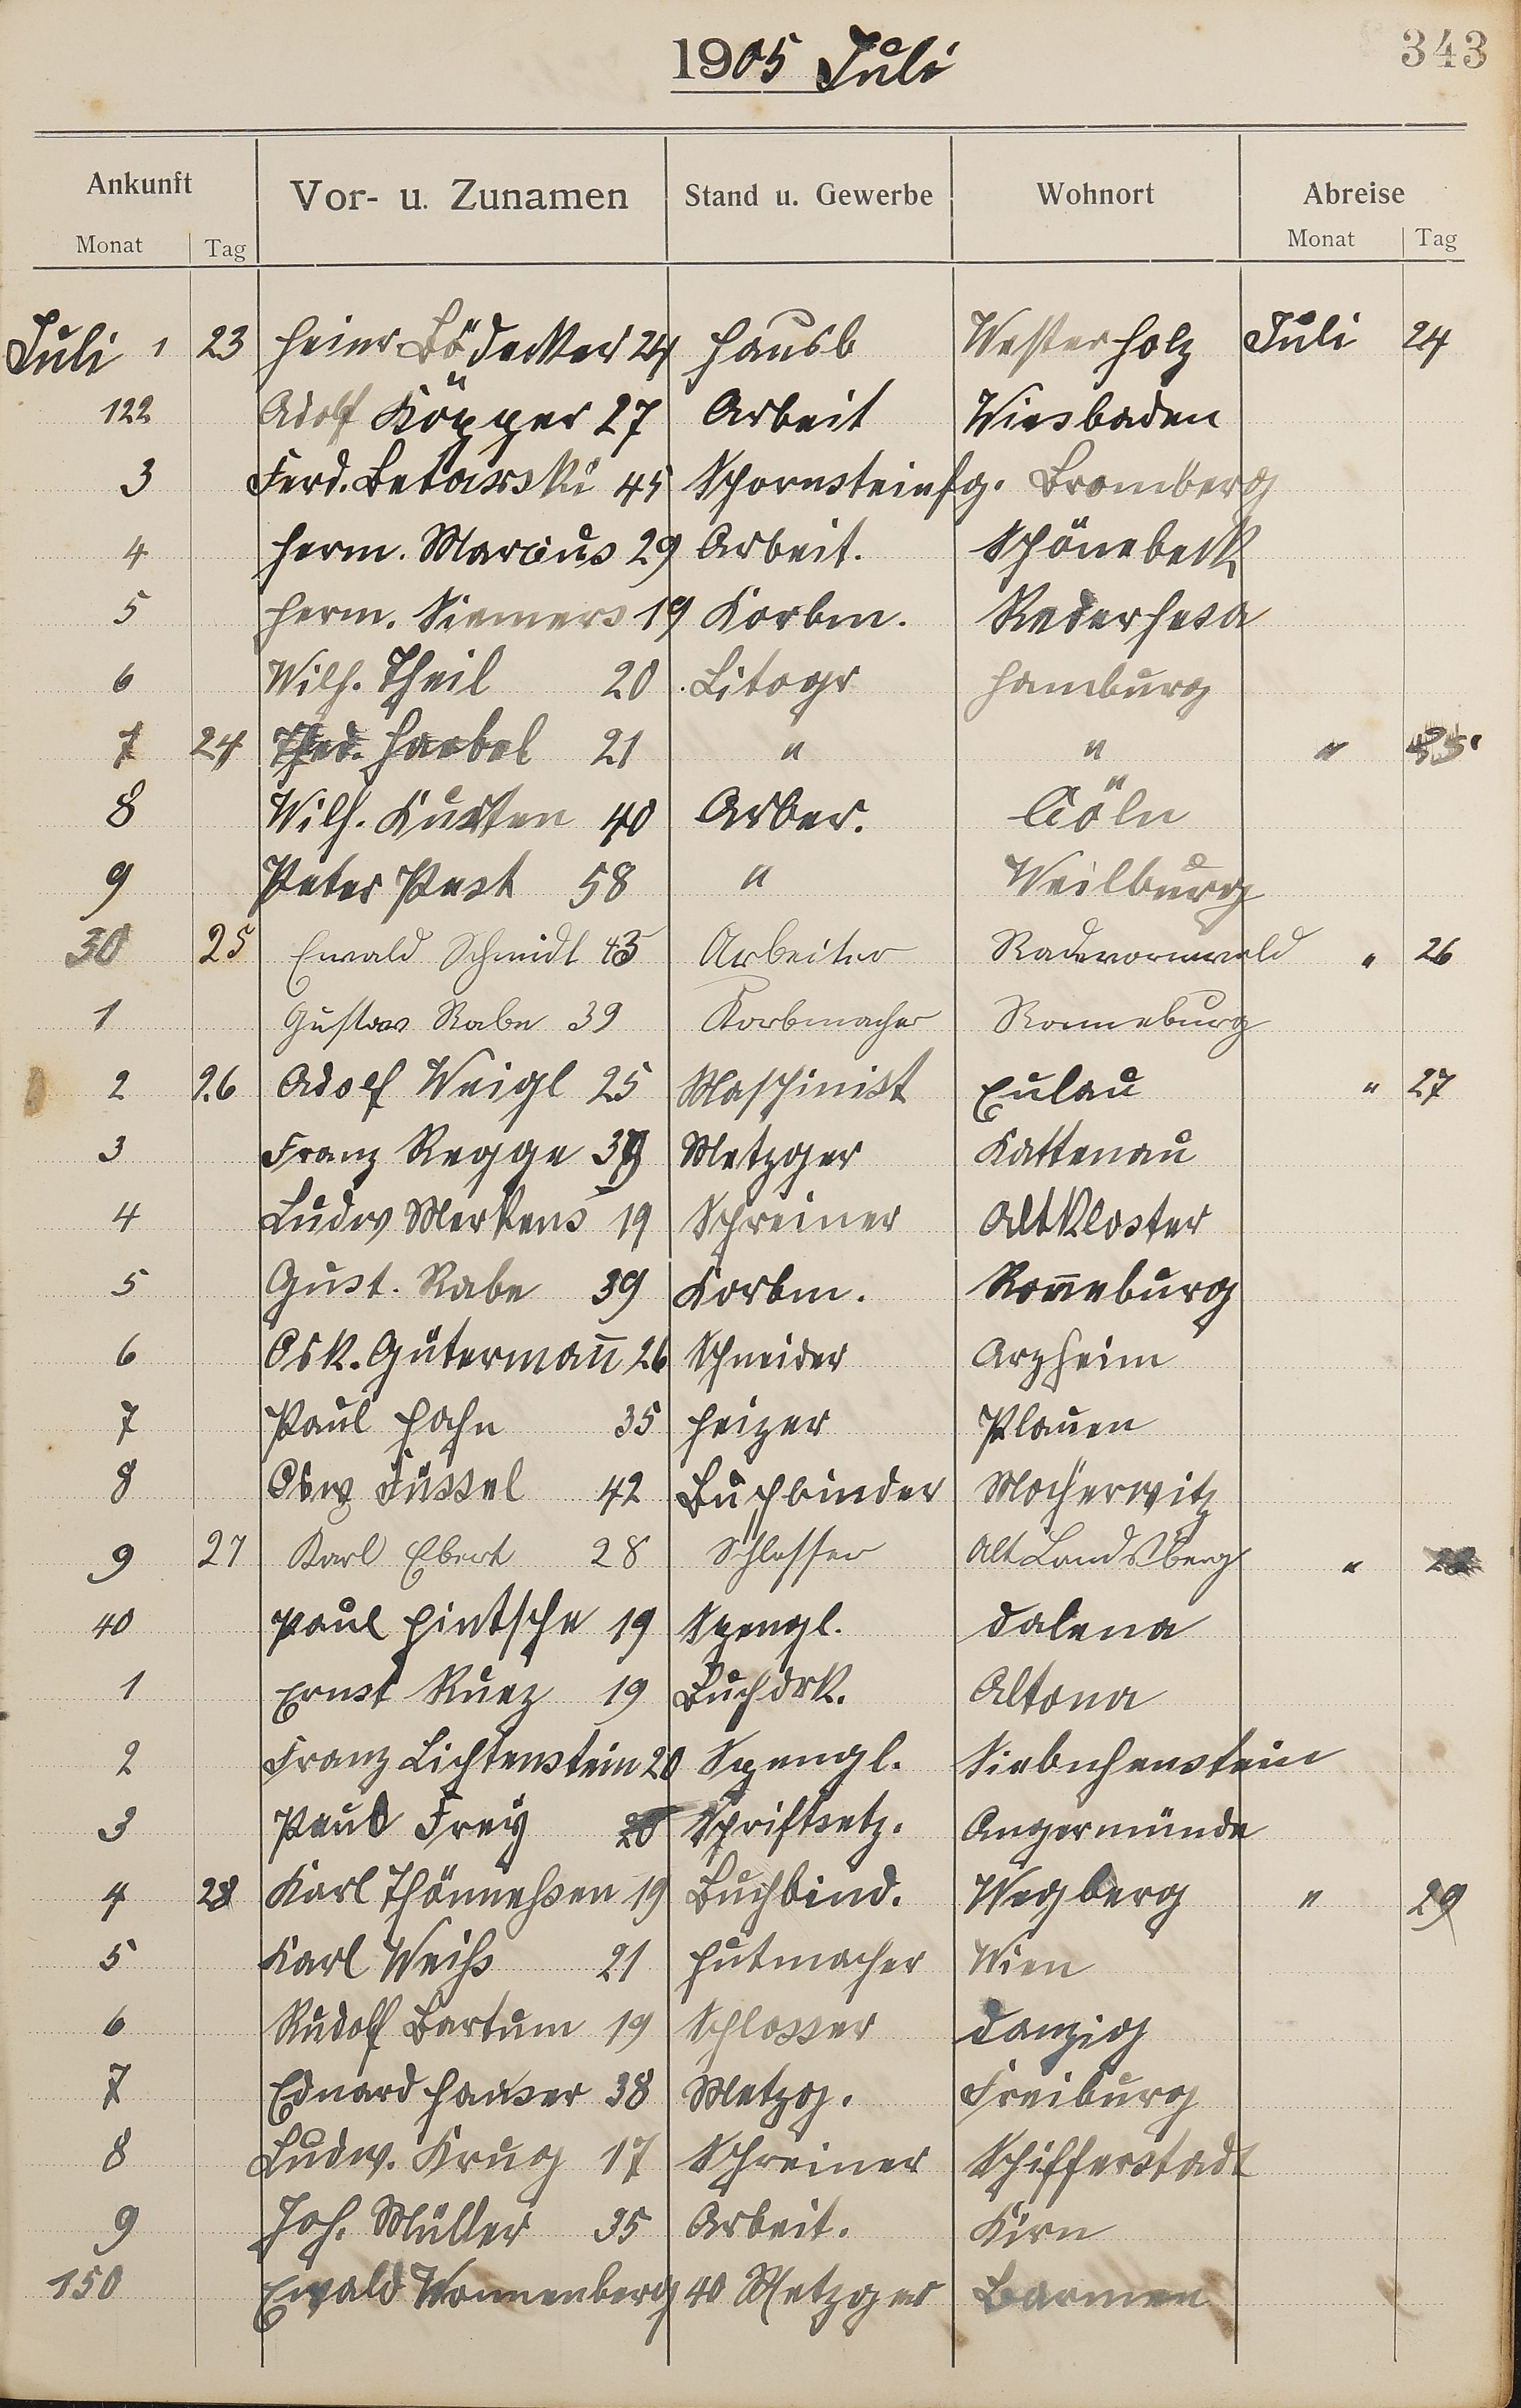 343
1905 Juli
Ankunft Vor- u. Zunamen Stand u. Gewerbe Wohnort Abreise
Monat Tag Monat Tag
Juli 1 23 Heinr Bödecker 24 Hausb Westerholz Juli 24
122 Adolf Köpper 27 Arbeit Wiesbaden
3 Ferd. Betarski 45 Schornsteinfg. Bromberg
4 Herm. Marcus 29 Arbeit. Schönebeck
5 Herm. Siemers 19 Korbm. Rederhesa
6 Wilh. Theil 20 Litogr Hamburg
7 24 Haebel 21 " " "
8 Wilh. Kursten 40 Arber. Cöln
9 Peter Pest 58 " Weilburg
30 25 Ewald Schmidt 43 Arbeiter Radevormwald " 26
1 Gustav Rabe 39 Korbmacher Ronneburg
2 26 Adolf Weigl 25 Maschinist Eulau " 27
3 Franz Regge Metzger Kattenau
4 Ludw Merkens 19 Schreiner Altkloster
5 Gust. Rabe 39 Korbm. Roneburg
6 Osk. Gütermañ 26 Schneider Arzheim
7 Paul Hahn 35 Heizer Plauen
8 Osw Füssel 42 Buchbinder Mocherwitz
9 27 Karl Ebert 28 Schlosser Alt Landsberg "
40 Paul Hintsche 19 Spengl. Dalena
1 Ernst Ruez 19 Buchdrk. Altona
2 Franz Lichtenstein 20 Spengl. Siebichenstein
3 Paul Frey Schriftsetz. Angermünde
4 28 Karl Thönneßen 19 Buchbind. Wegberg " 29
5 Karl Weihs 21 Hutmacher Wien
6 Rudolf Bartum 19 Schlosser Danzig
7 Eduard Hauser 38 Metzg. Freiburg
8 Ludw. Krug 17 Schreiner Schifferstadt
9 Joh. Müller 35 Arbeit. Kirn
150 Ewald Wonnenberg 40 Metzger Barmen